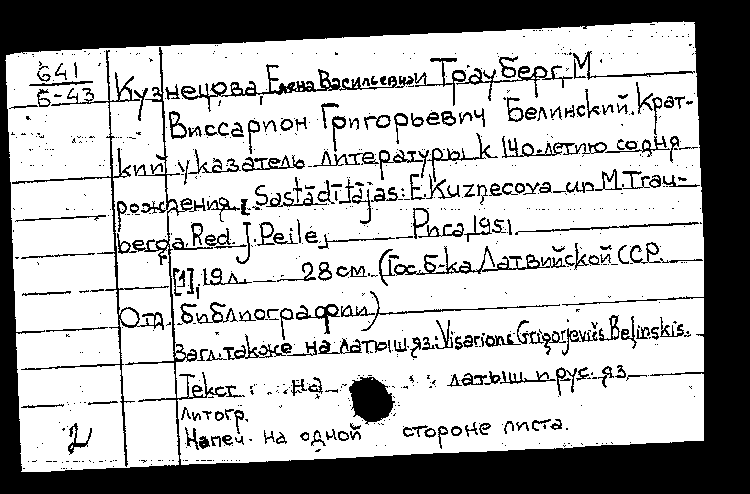 G41
Б-43
Кузнецова, Елена Васильевна и Трауберг, М.
Виссарион Григорьевич Белинский. Крат-
кий указатель литературы к 140-летию со дня
рождения. [Sastādītājas: E. Kuzņecova un M. Trau-
berga. Red. J. Peile]
Рига, 1951.
[1], 19 л. 28 см. (Гос. б-ка Латвийской ССР.
Отд. библиографии)
Загл. также на латыш. яз.: Visarions Grigorjevičs Beļinskis.
Текст на латыш. и рус. яз.
Литогр.
Напеч. на одной стороне листа.
2